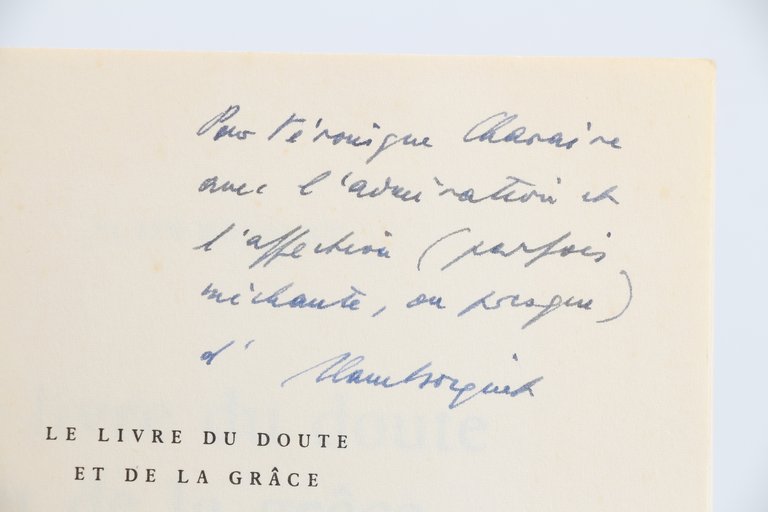 Pour Véronique Charaire
avec l'admiration et
l'affection (parfois
méchante, ou presque)
d' Alain Bosquet
LE LIVRE DU DOUTE
ET DE LA GRÂCE